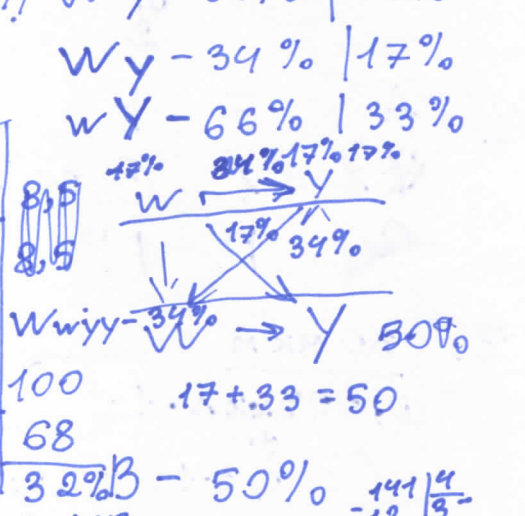 Wy - 34% | 17%
wY - 66% | 33%
17% 34% 17% 17%
8,5 w → Y
17% 34%
8,5
Wwyy - 34% W → Y 50%
100
.17 + .33 = 50
68
32% B - 50%
141 | 4